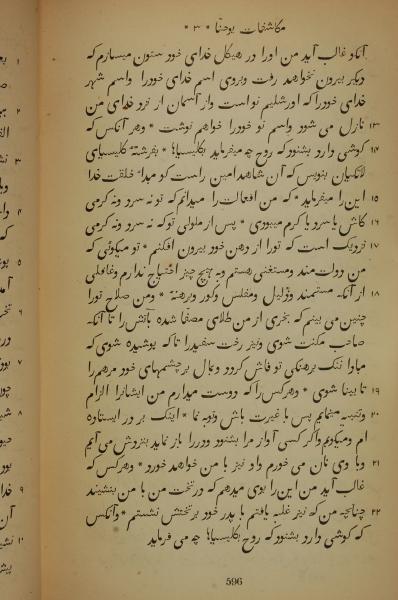 مکاشفات یوحنا * ۳ *
آنکو غالب آید من اورا در هیکل خدای خود ستون میسازم که
دیگر بیرون نخواهد رفت وبروی اسم خدای خودرا واسم شهر
خدای خودرا که اورشلیم نو است واز آسمان از نزد خدای من
نازل می شود واسم نو خودرا خواهم نوشت * وهر آنکس که ۱۳
کوشی دارد بشنود که روح چه میفرماید بکلیسیاها * بفرشتهٔ کلیسیای ۱۴
لائکیان بنویس که آن شاهد امین راست کو مبدأ خلقت خدا
این را میفرماید * که من افعالت را میدانم که تو نه سرد ونه کرمی ۱۵
کاش یا سرد یا کرم میبودی * پس از ملولی تو که نه سرد ونه کرمی ۱۶
نزدیک است که تورا از دهن خود بیرون افکنم * تو میکوئی که ۱۷
من دولت مند ومستغنی هستم وبه هیچ چیز احتیاج ندارم وغافلی
از آنکه مستمند وذلیل ومفلس وکور وبرهنهٔ * ومن صلاح تورا ۱۸
چنین می بینم که بخری از من طلای مصفا شده بآتش را تا آنکه
صاحب مکنت شوی ونیز رخت سفیدرا تا که پوشیده شوی که
مبادا ننک برهنکی تو فاش کردد وبمال بر چشمهای خود مرهم را
تا بینا شوی * وهر کس را که دوست میدارم من ایشانرا الزام ۱۹
وتنبیه مینمایم پس با غیرت باش وتوبه نما * اینک بر در ایستاده ۲۰
ام ومیکوبم واگر کسی آواز مرا بشنود ودررا باز نماید بنزدش می آیم
وبا وی نان می خورم واو نیز با من خواهد خورد * وهر کس که ۲۱
غالب آید من این را بوی میدهم که در تخت من با من بنشیند
چنانچه من که نیز غلبه یافتم با پدر خود بر تختش نشستم * وآنکس ۲۲
که کوشی دارد بشنود که روح بکلیسیاها چه می فرماید
596